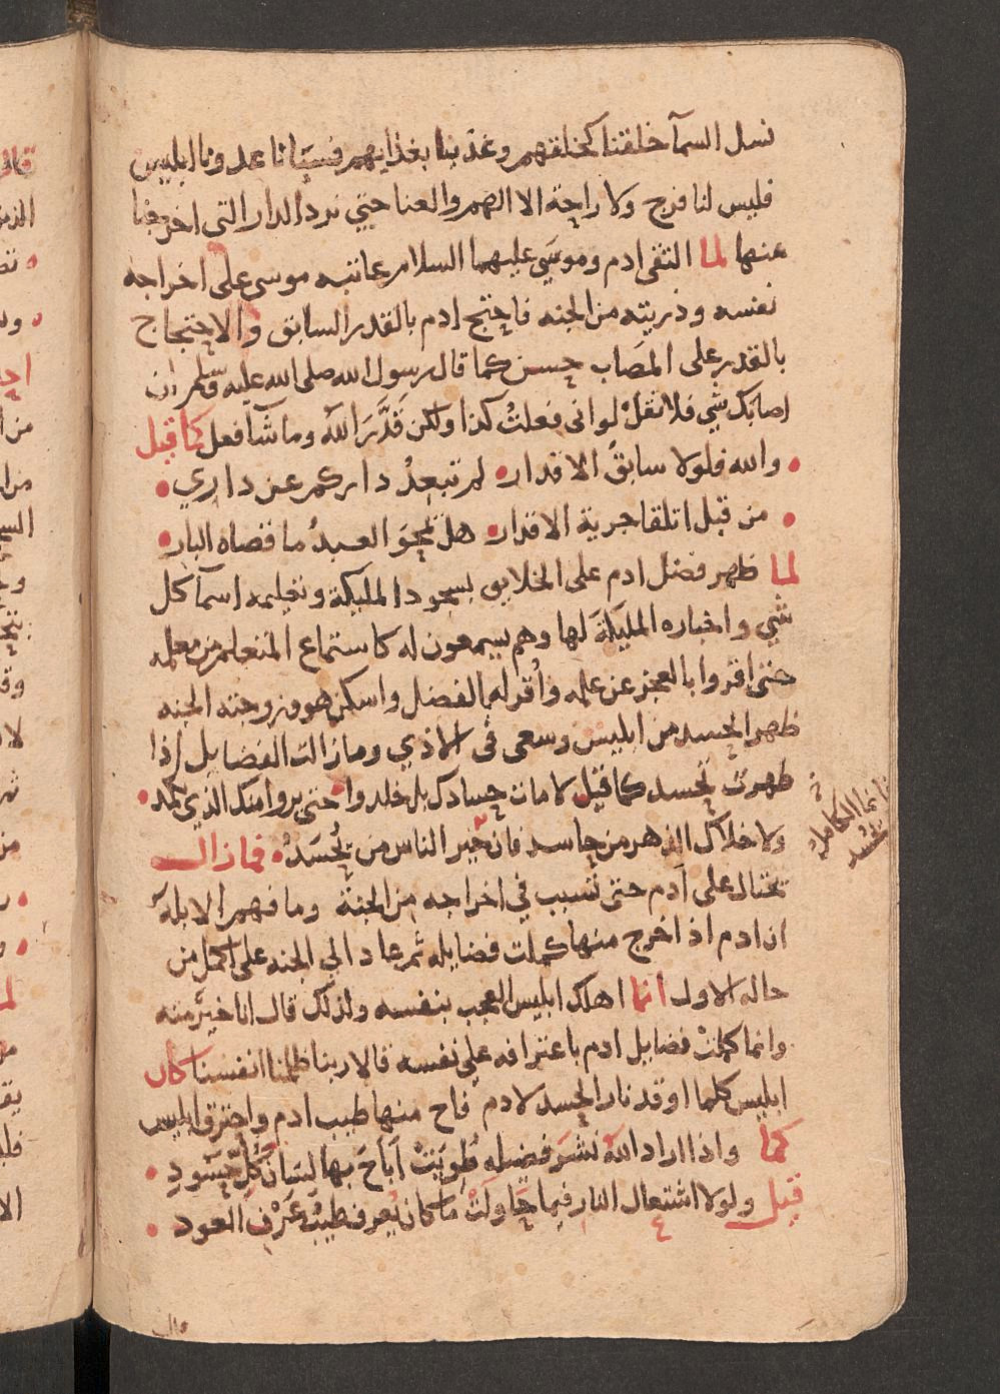 نسل السمآ خلقنا كخلقهم وغذينا بغذايهم فسبانا عدونا ابليس
فليس لنا فرح ولا راحة الا الهم والعنا حتي نرد الدار التي اخرجنا
عنها لما التقى ادم وموسَى عليهما السلام عاتبه موسى على اخراجه
نفسه وذريته من الجنه فاحتج ادم بالقدر السابق والاحتجاج
بالقدر على المصَاب حسن كما قال رسول الله صلى الله عليه وسلم ان
اصابك شي فلا تقلْ لو اني فعلتُ كذا ولكن قَدَّرَ اللّه وما شآ فعل كما قيل
والله فلولا سابقُ الاقدار • لم تبعدْ داركم عن داري •
• من قبل اتلقا جرية الاقدار • هل تمحوَ العبدُ ما قضاه البار •
لما ظهر فضل ادم على الخلايق بسجود المليكة وتعليمه اسمآ كل
شي واخباره المليكة لها وهم يسمعون له كاستماع المتعلم من معلمه
حتى اقروا بالعجز عن علمه وأقر له بالفضل واسكن هو وزوجته الجنه
ظهر الحسد من ابليس وسعى فى الاذي وما زالت الفضايل إذا
ظهرت تحسد كما قيل لا مات حسادك بل خلدوا حتى يروا منك الذي يكمد •
ولا خلاك الدهر من حاسد فان خير الناس من يُحسَدُ • فما زال
يحتال على آدم حتى تسبب في اخراجه من الجنة وما فهم الابله
ان ادم اذ اخرج منها كملت فضايله ثم عاد الي الجنه على اكمل من
حاله الاول انما اهلك ابليس العجب بنفسه ولذلك قال انا خيرٌ منه
وانما كملتْ فضايل ادم باعترافه على نفسه قالا ربنا ظلمنا انفسنا كان
ابليس كلما اوقد نار الحسد لادم فاح منها طيب ادم واحترق ابليس
كما واذا اراد اللّه نشرَ فضيلهِ طُويَتْ أباحَ بها لسَانَ كُلِّ حَسُودِ •
قيل ولولا اشتعال النار فيما جَاولَتْ ما كان يُعرف طيبُ عَرْفِ العود •
فانما الكامل يحسد